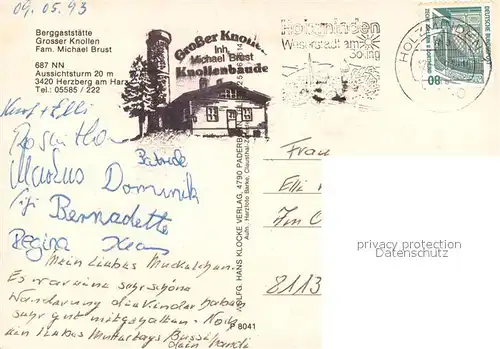 09.05.93
Berggaststätte
Grosser Knollen
Fam. Michael Brust
687 NN
Aussichtsturm 20 m
3420 Herzberg am Harz
Tel.: 05585 / 222
Großer Knollen
Inh.
Michael Brust
Knollenbaude
Holzminden
Weserstadt am
Solling
HOLZMINDEN
80
Kurt + Elli
Roswitha
Patrick
Markus Dominik
Bernadette
Regina
Mein Liebes
Es war eine sehr schöne
Wanderung die Kinder haben
sehr gut mitgehalten. Noch
ein Liebes Muttertags Bussi
dein
WOLFG. HANS KLOCKE VERLAG, 4790 PADERBORN
Aufn.: Harzfoto Barke, Clausthal-Zellerfeld
P 8041
Frau
Elli
Im
8113
privacy protection
Datenschutz